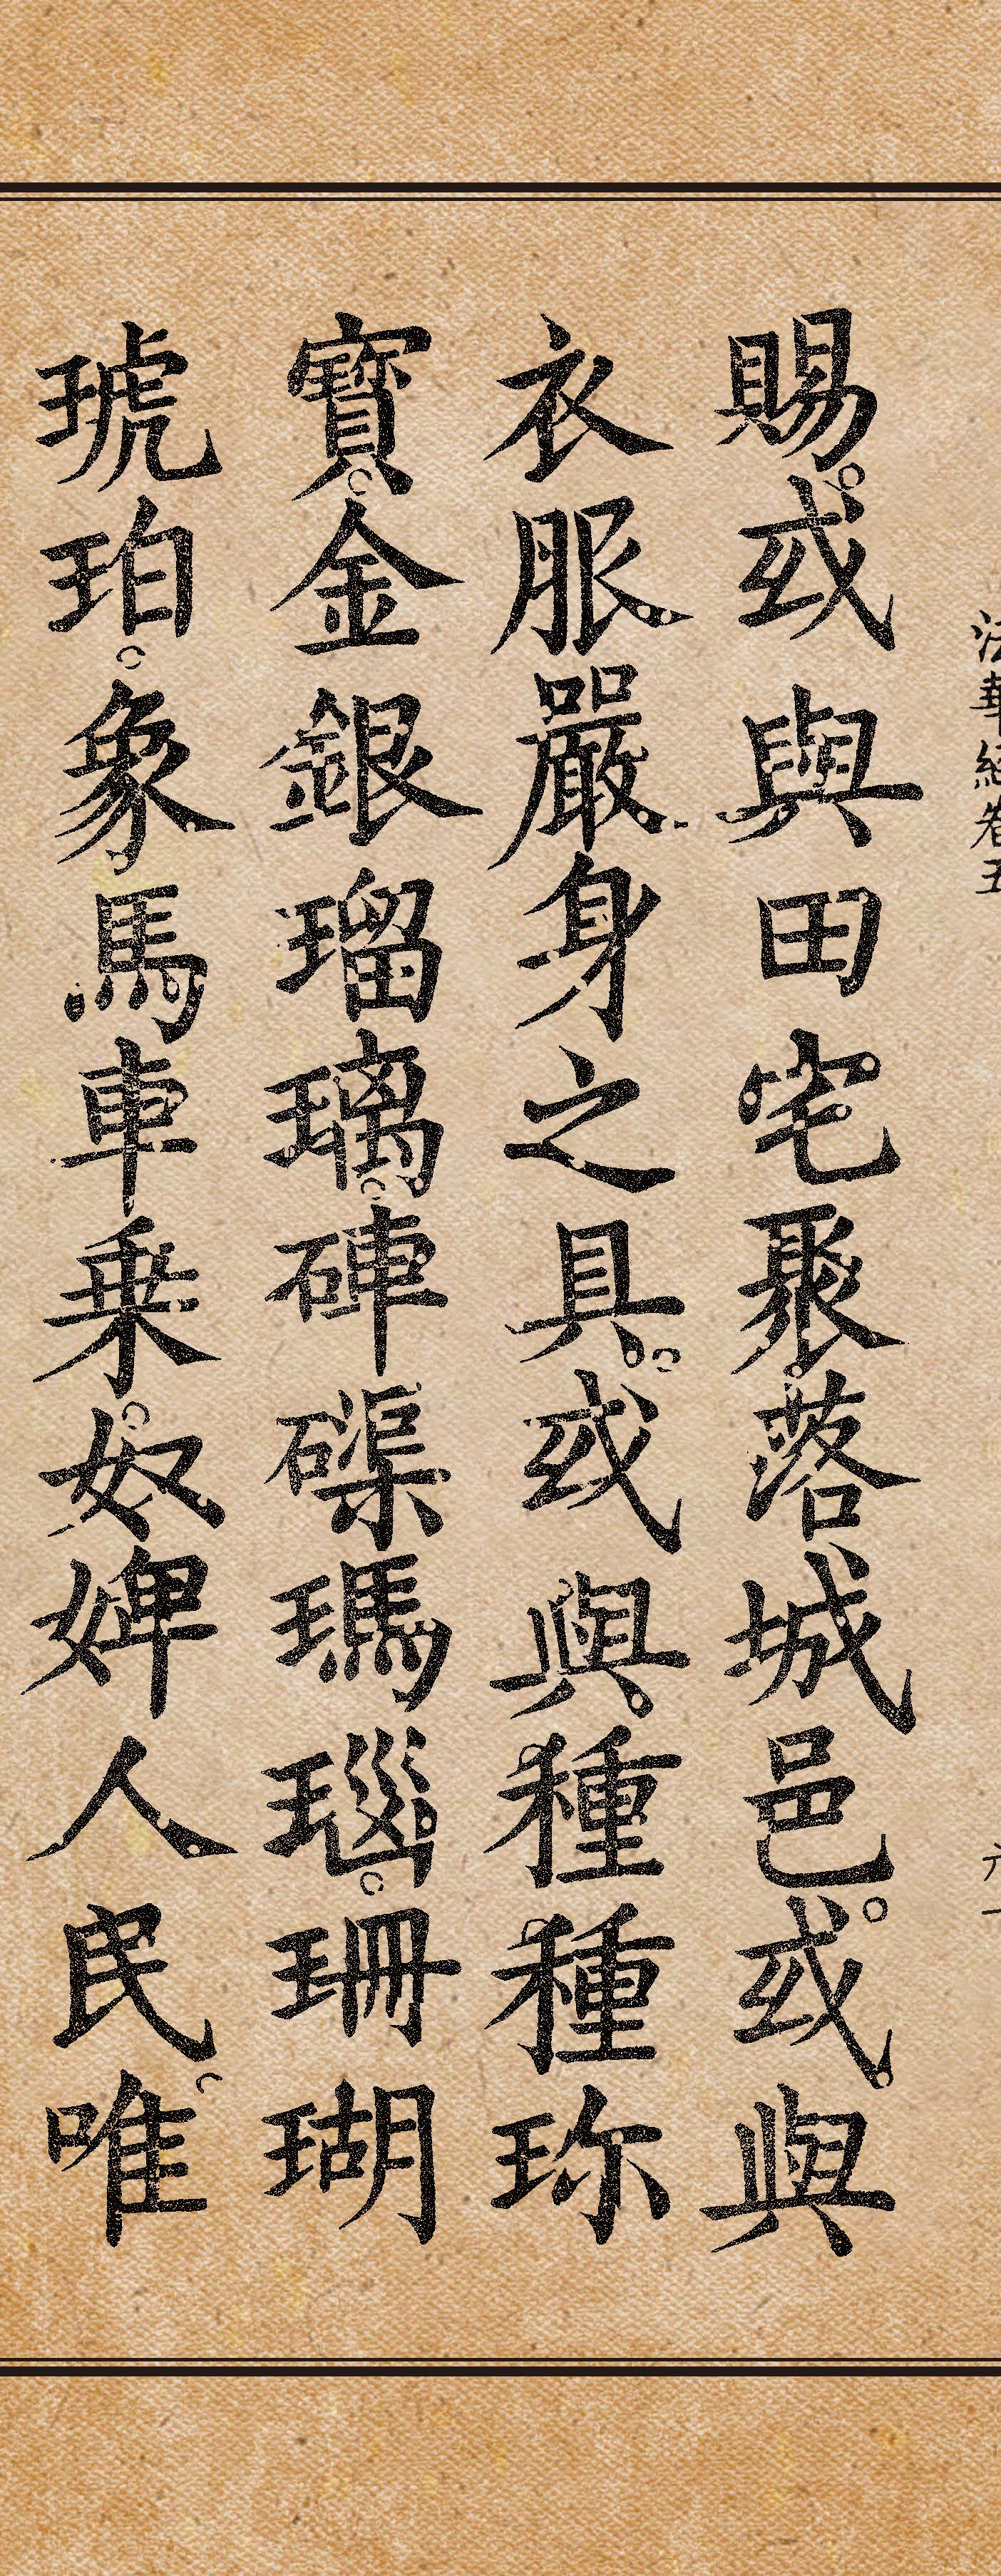 法華經卷五
六一
賜。或與田宅聚落城邑。或與
衣服嚴身之具。或與種種珍
寶。金銀瑠璃。硨磲瑪瑙。珊瑚
琥珀。象馬車乗。奴婢人民。唯